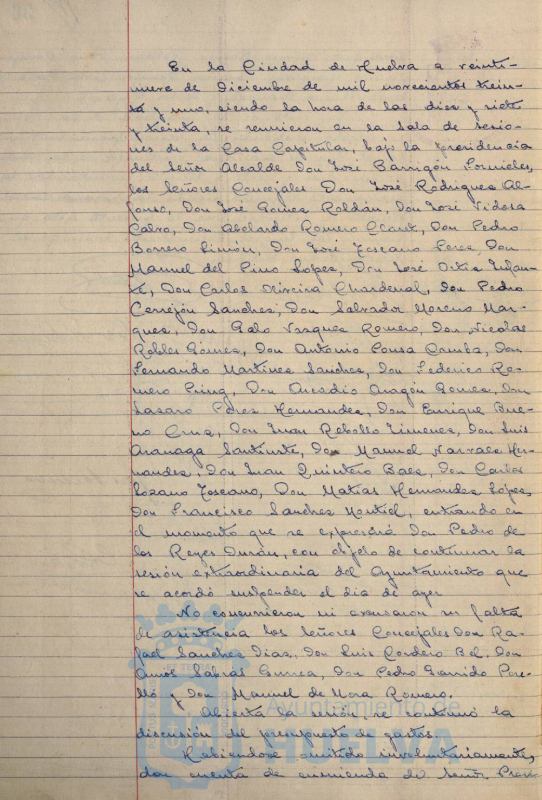 En la Ciudad de Huelva a veinti-
nueve de Diciembre de mil novecientos trein-
ta y uno, siendo la hora de las diez y siete
y treinta, se reunieron en la Sala de Sesio-
nes de la Casa Capitular, bajo la presidencia
del Señor Alcalde Don José Barrigón Fornieles,
los Señores Concejales Don José Rodríguez Al-
fonso, Don José Gómez Roldán, Don José Vidosa
Calvo, Don Abelardo Romero Claret, Don Pedro
Borrero Limón, Don José Toscano Perez, Don
Manuel del Pino López, Don José Ortiz Infan-
te, Don Carlos Oliveira Chardenal, Don Pedro
Cerrejón Sanchez, Don Salvador Moreno Mar-
quez, Don Galo Vazquez Romero, Don Nicolas
Robles Gómez, Don Antonio Pousa Camba, Don
Fernando Martinez Sanchez, Don Federico Ro-
mero Don Arcadio Aragón Gomez, Don
Lazaro Pérez Hernandez, Don Enrique Bue-
no Cruz, Don Juan Rebollo Jimenez, Don Luis
Don Manuel Narvaez Her-
nandez, Don Juan Quintero Baez, Don Carlos
Lozano Toscano, Don Matías Hernandez López,
Don Francisco Sanchez Montiel, entrando en
el momento que se expresará Don Pedro de
los Reyes Durán, con objeto de continuar la
sesión extraordinaria del Ayuntamiento que
se acordó suspender el día de ayer.
No concurrieron ni excusaron su falta
de asistencia los Señores Concejales Don Ra-
fael Sanchez Diaz, Don Luis Cordero Bel, Don
Amós Sabrás Gurrea, Don Pedro Garrido Pere-
lló y Don Manuel de Mora Romero.
Abierta la sesión, se continuó la
discusión del presupuesto de gastos.
Habiendose omitido involuntariamente,
dar cuenta de enmienda del Señor
Ayuntamiento de
HUELVA